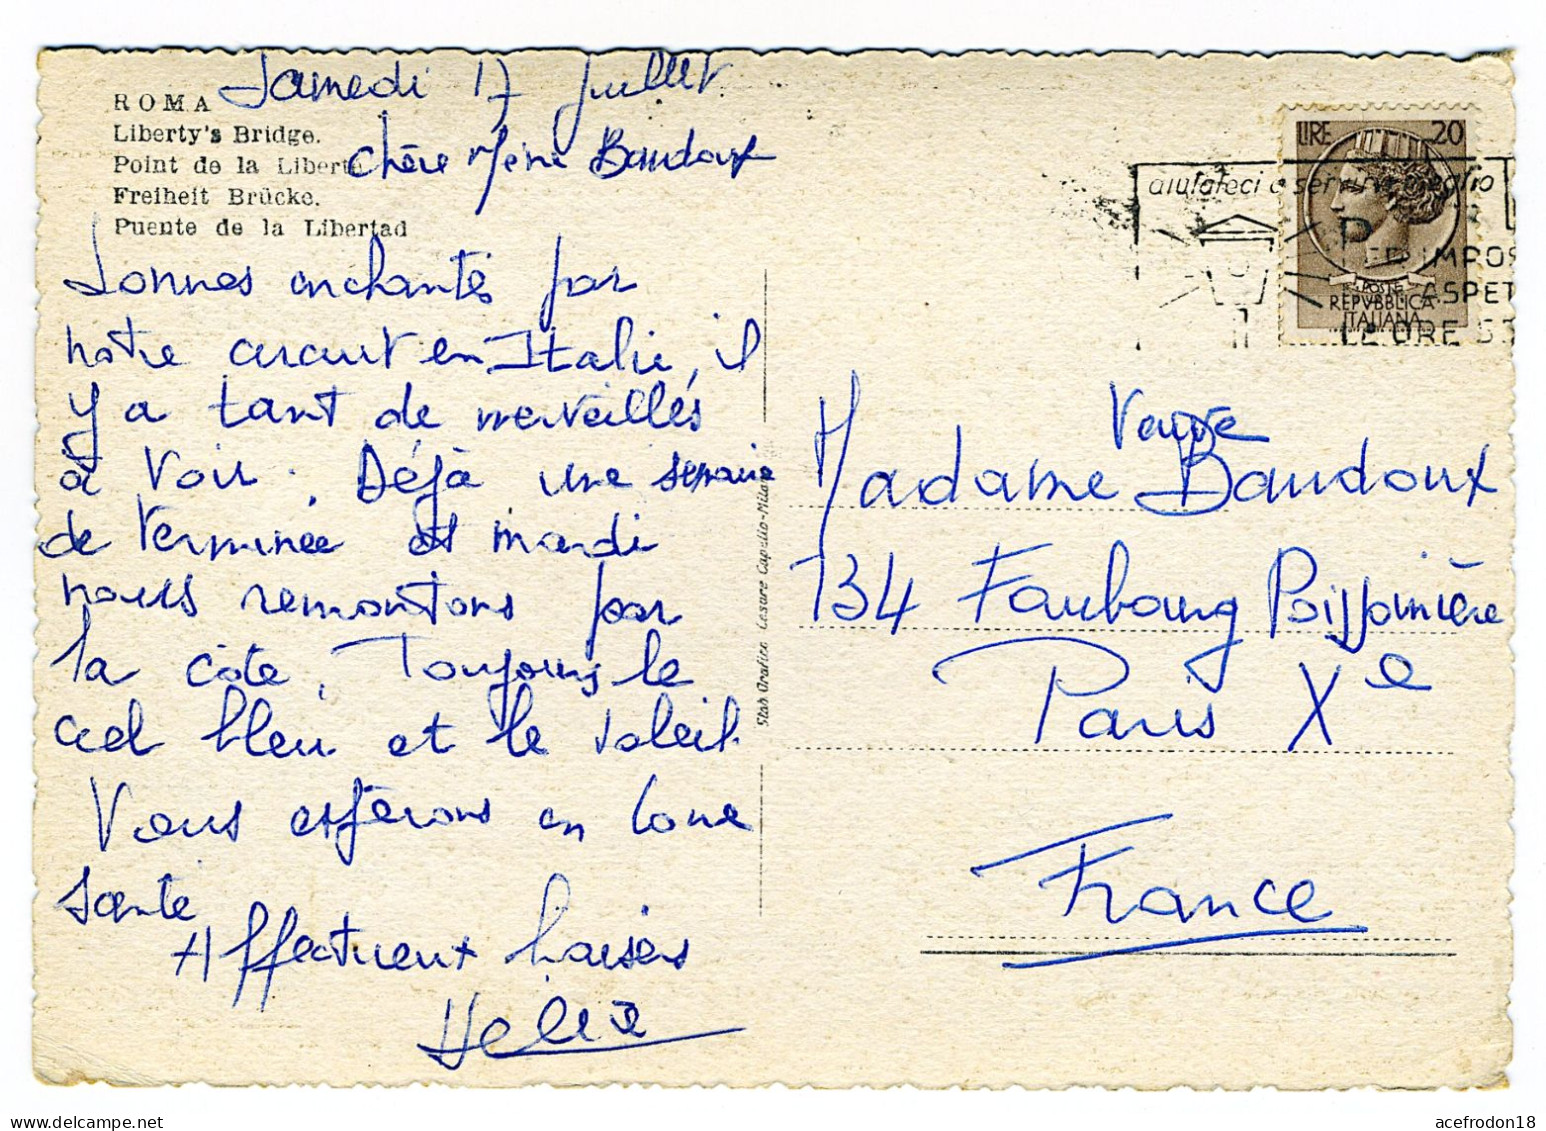 ROMA
Liberty's Bridge.
Point de la Liberté
Freiheit Brücke.
Puente de la Libertad
Samedi 17 juillet
Chère Mme Baudoux
Sommes enchantés par
notre circuit en Italie, il
y a tant de merveilles
à voir. Déjà une semaine
de terminée et mardi
nous remontons par
la côte. Toujours le
ciel bleu et le soleil.
Vous espérons en bonne
santé
Affectueux baisers
Star Grafica Cesare Capello-Milano
LIRE 20
POSTE
REPVBBLICA
ITALIANA
aiutateci a servirvi meglio
ED IMPOS
ASPET
LE ORE
Veuve
Madame Baudoux
134 Faubourg Poissonnière
Paris Xe
France
acefrodon18